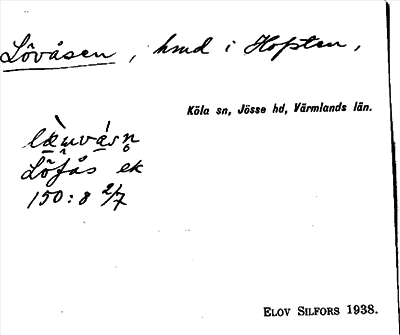 Lövåsen, hmd i Hopten,
Köla sn, Jösse hd, Värmlands län.
Löfås ek
150:8 2/7
ELOV SILFORS 1938.